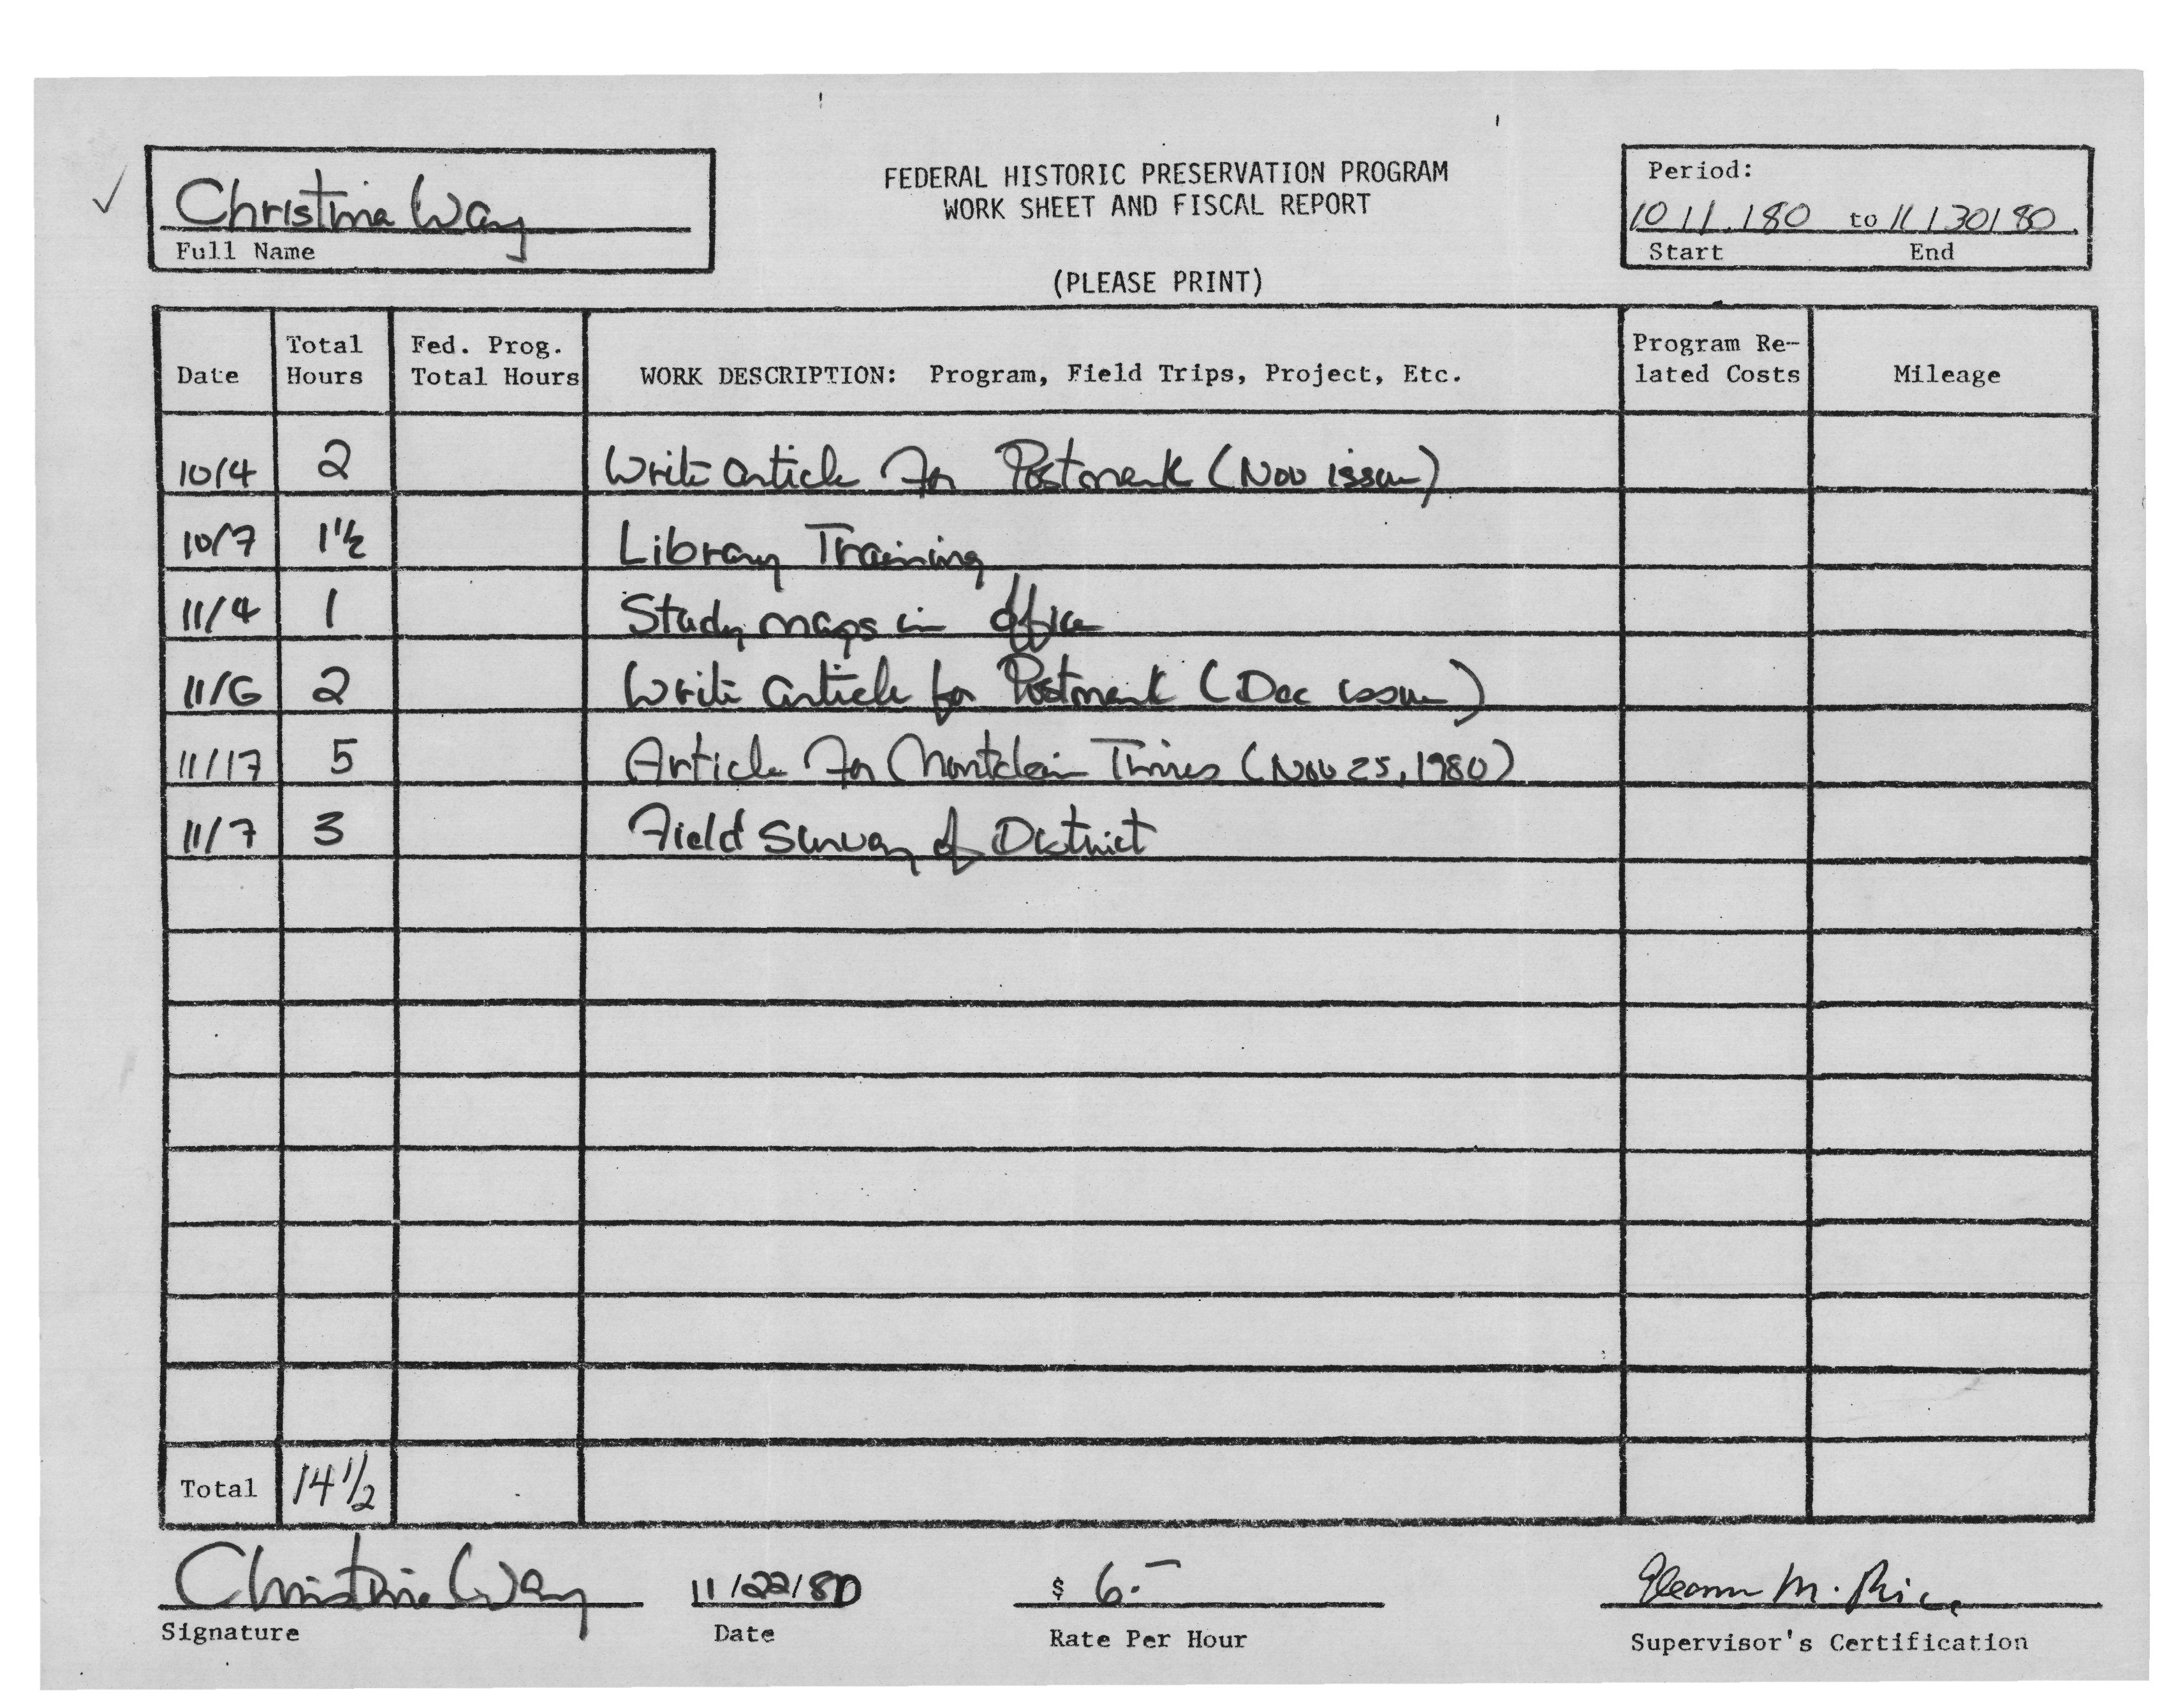 FEDERAL HISTORIC PRESERVATION PROGRAM
WORK SHEET AND FISCAL REPORT
(PLEASE PRINT)
Christina Way
Full Name
Period:
10/1/80 to 11/30/80
Start End
Date Total Hours Fed. Prog. Total Hours WORK DESCRIPTION: Program, Field Trips, Project, Etc. Program Re-lated Costs Mileage
10/4 2 Write article for Postmark (Nov issue)
10/7 1 1/2 Library Training
11/4 1 Study maps in office
11/6 2 Write article for Postmark (Dec issue)
11/17 5 Article for Montclair Times (Nov 25, 1980)
11/7 3 Field Survey of District
Total 14 1/2
Christina Way 11/22/80 $ 6.- Eleanor M. Price
Signature Date Rate Per Hour Supervisor's Certification